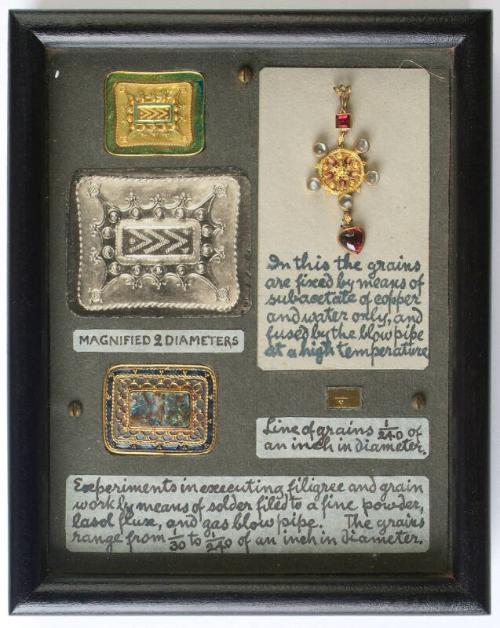 In this the grains
are fixed by means of
subacetate of copper
and water only, and
fused by the blowpipe
at a high temperature
MAGNIFIED 2 DIAMETERS
Line of grains 1/240 of
an inch in diameter.
Experiments in executing filigree and grain
work by means of solder filed to a fine powder,
lasol flux, and gas blow pipe. The grains
range from 1/30 to 1/240 of an inch in diameter.